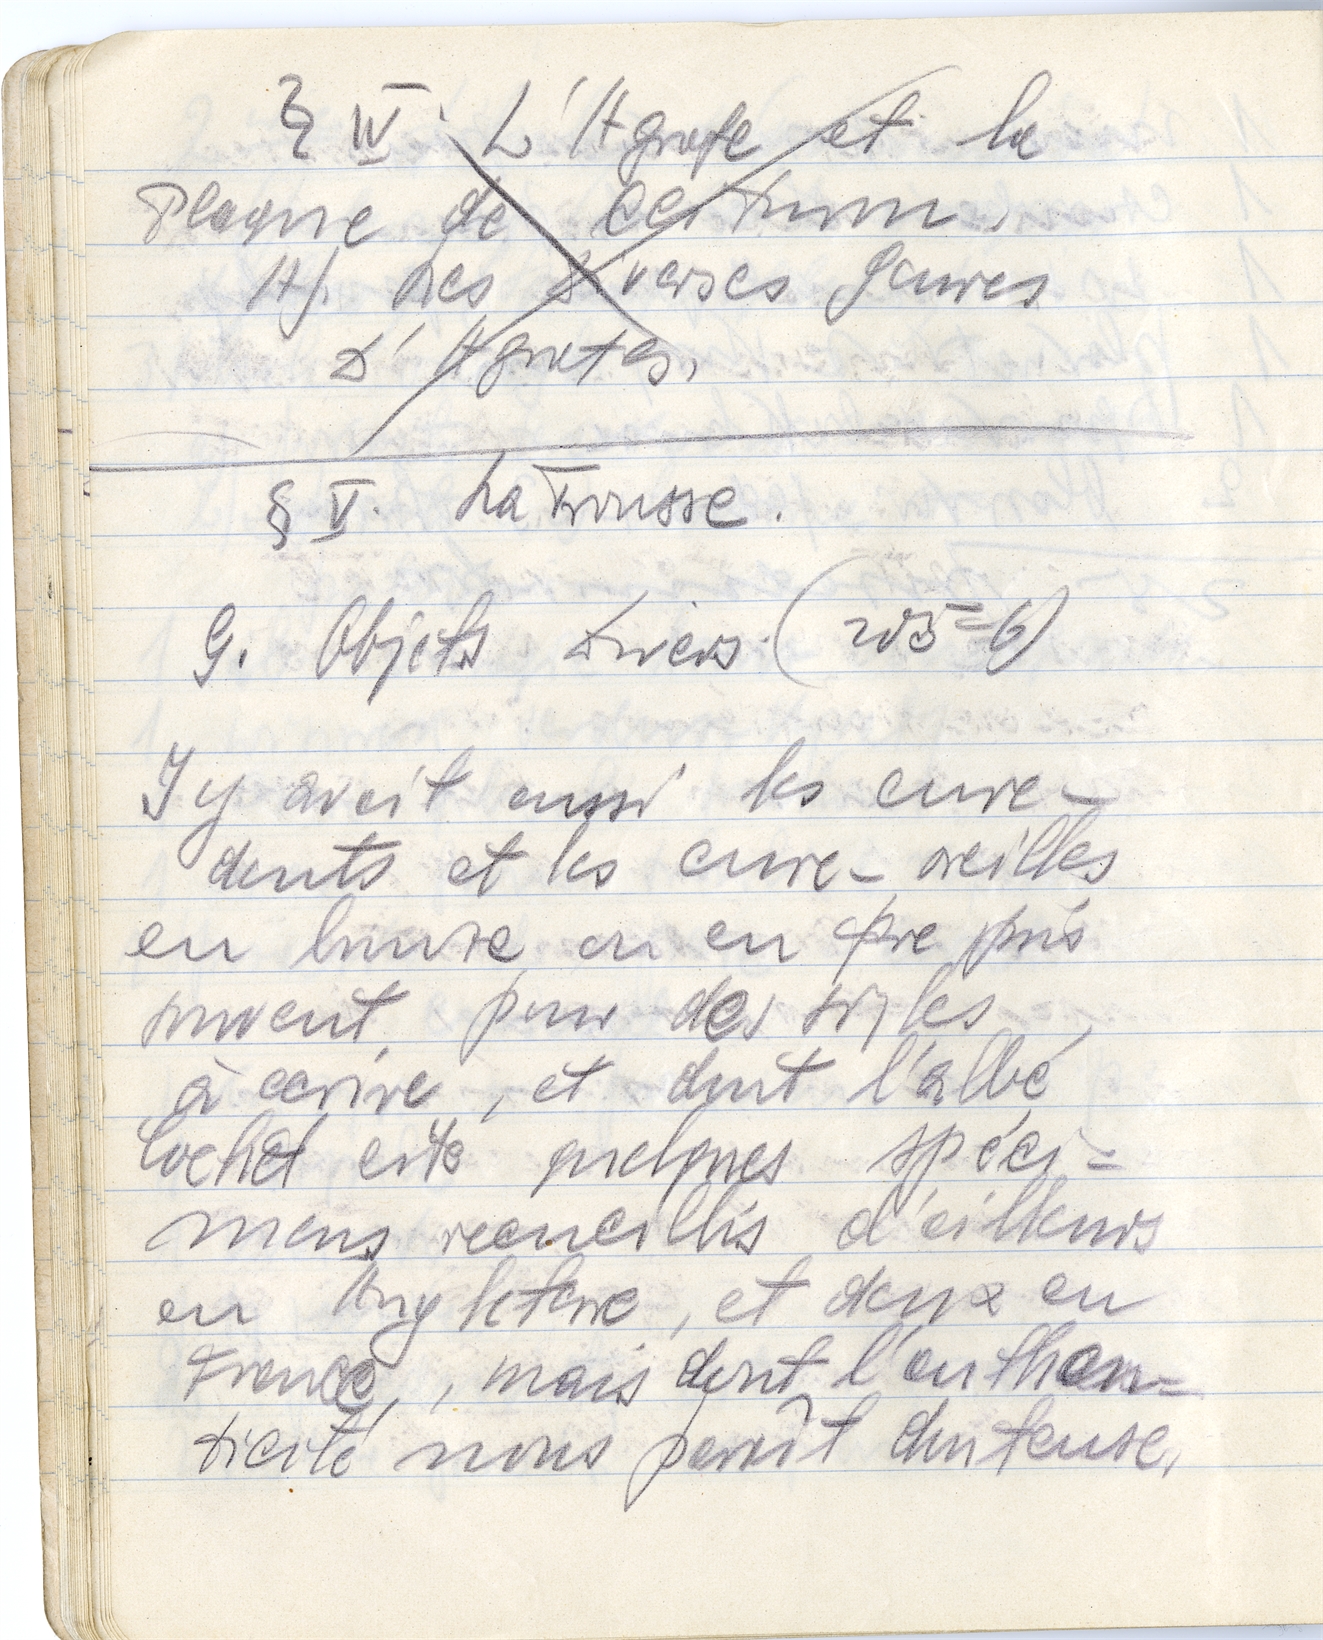 § IV. L'Agrafe et la
Plaque de ceinturon.
A). Des diverses genres
D'Agrafes.
§ V. La Trousse.
G. Objets divers (205=6)
Il y avait aussi les cure-
dents et les cure-oreilles
en bronze ou en fer pris
souvent pour des styles
à écrire, et dont l'abbé
Cochet cite quelques spéci=
mens recueillis d'ailleurs
en Angleterre, et deux en
France, mais dont l'authen=
ticité nous paraît douteuse.